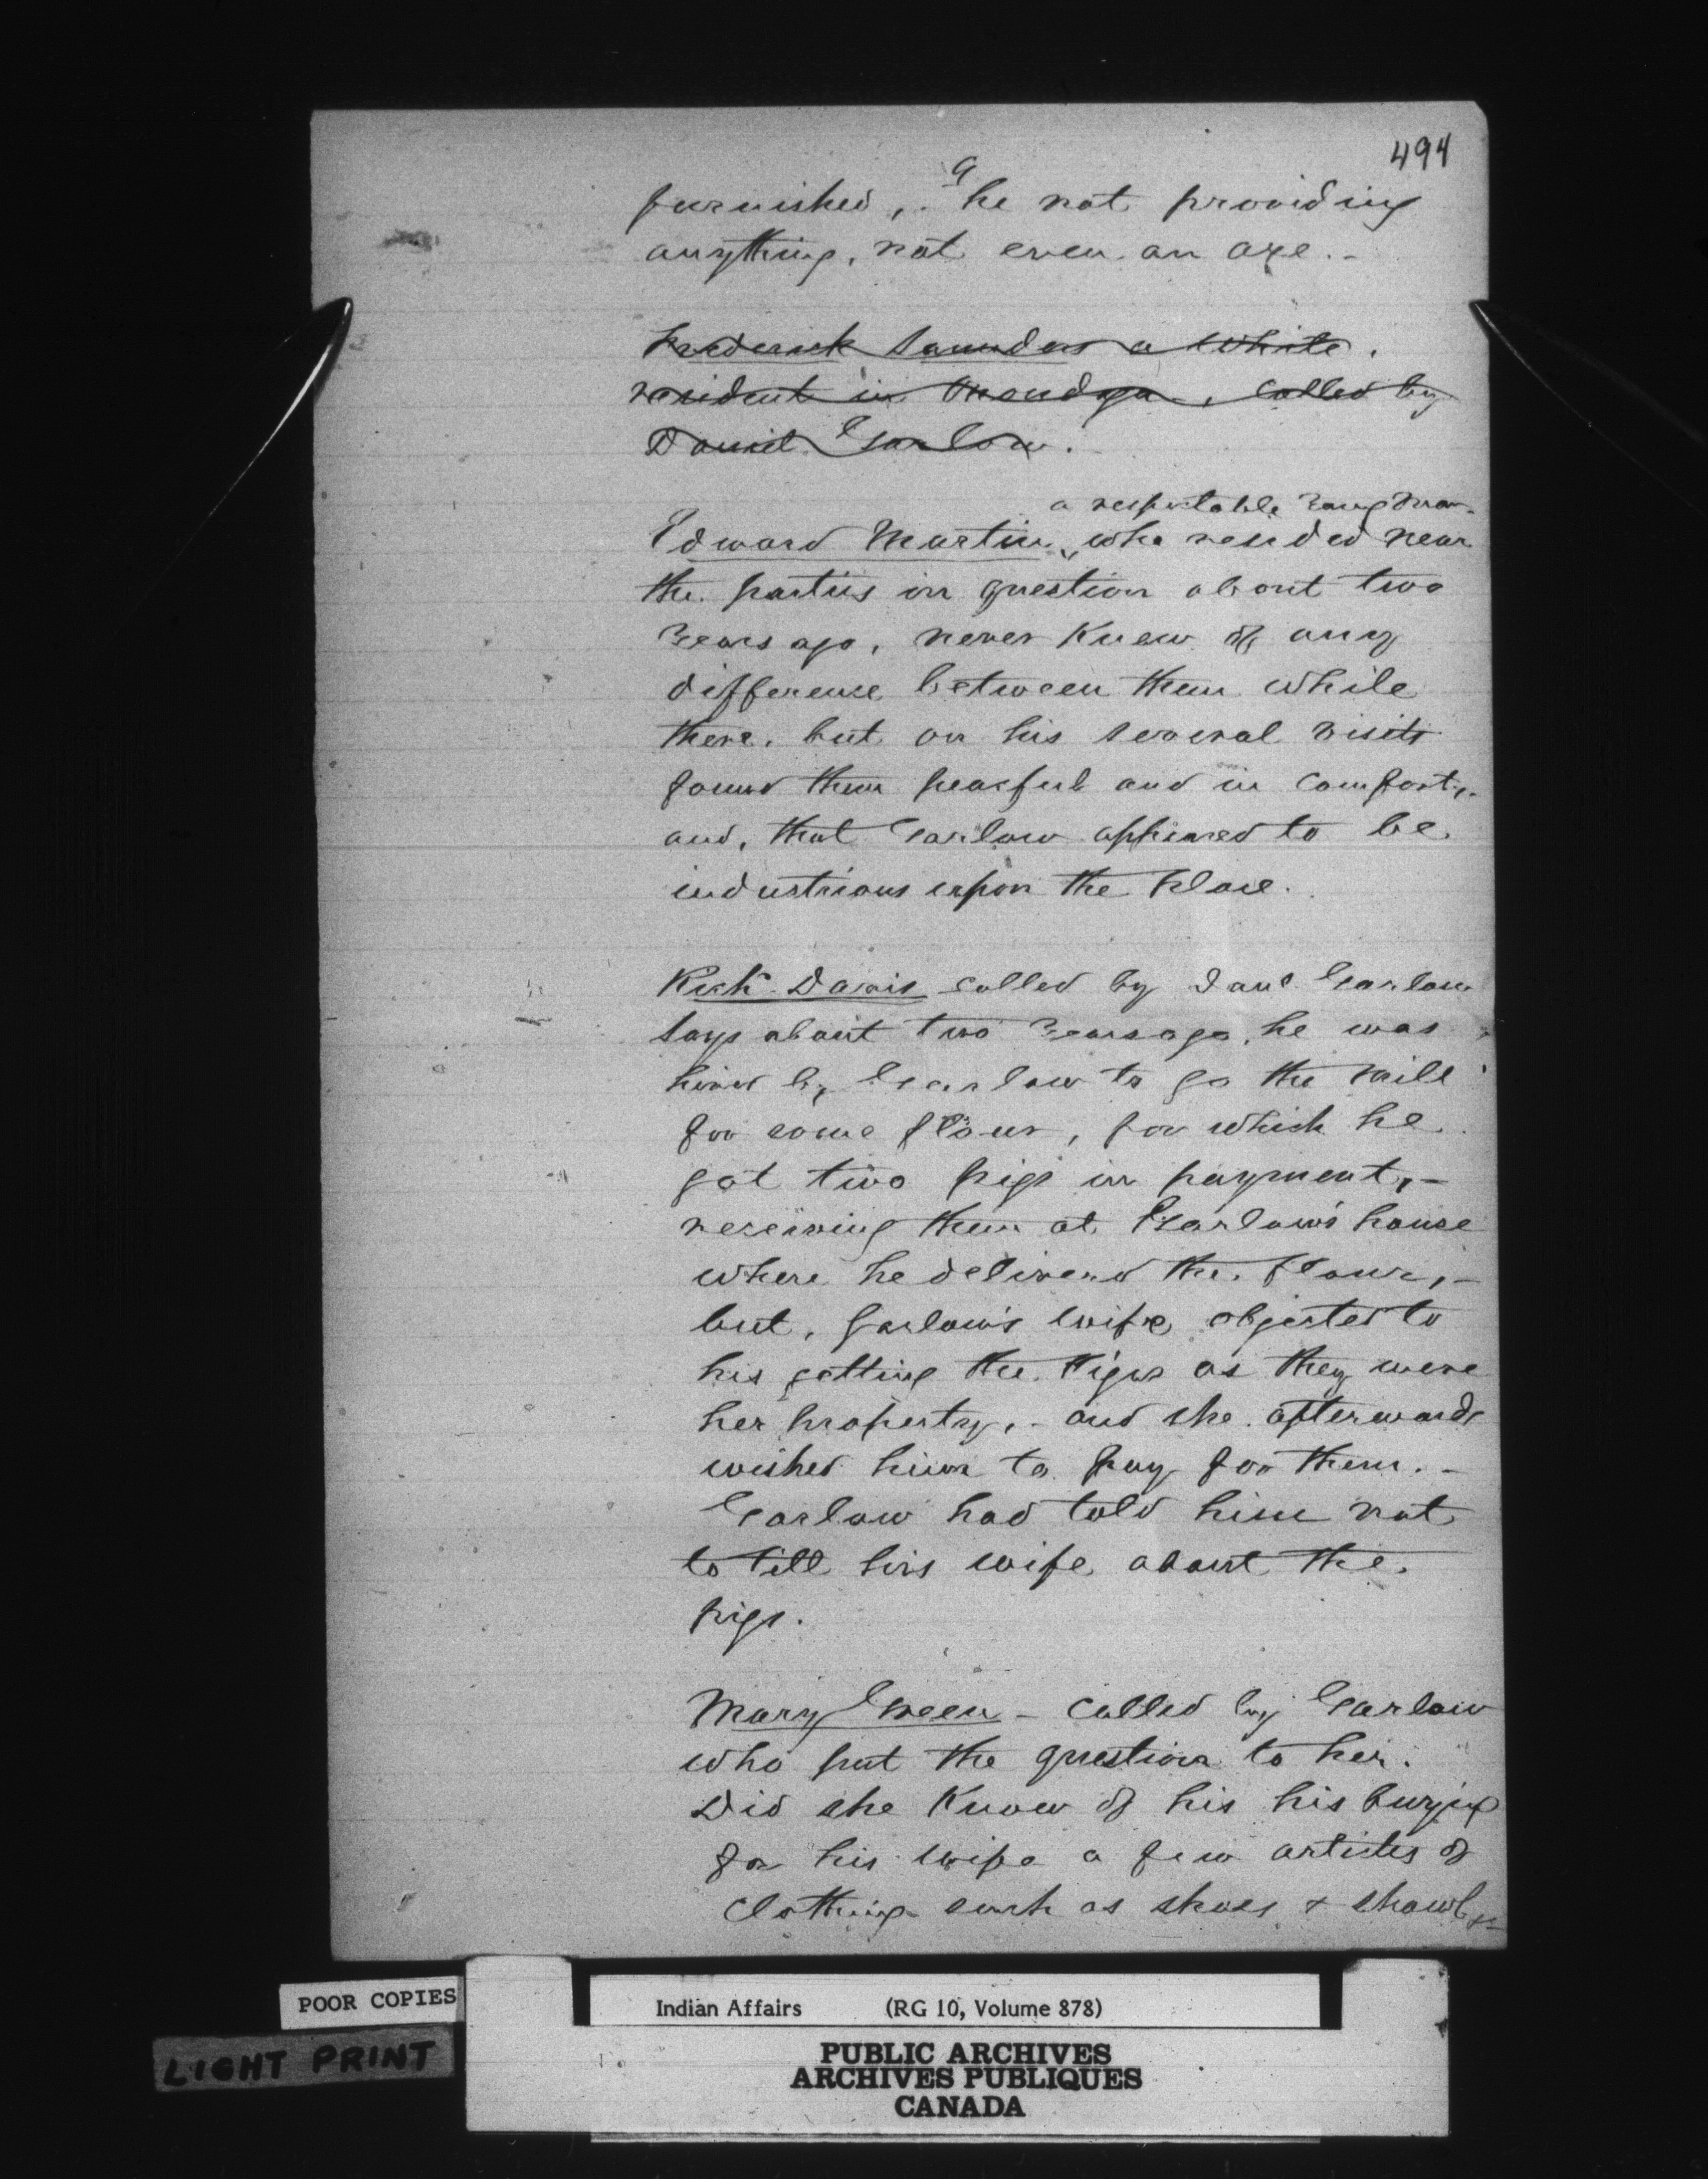 494
9
furnished, - he not providing
anything, not even an axe. -
Frederick Saunders a White
resident in Onondaga, called by
David Garlow.
a respectable Young Man
Edward Martin, who resided near
the parties in question about two
Years ago, never Knew of any
difference between them while
there, but on his several visits
found them peacful and in comfort, -
and, that Garlow appeared to be
industrious upon the Place.
Richd Davis called by Garlow
says about two Years ago, he was
hired by Garlow to go the mill
for some flour, for which he
got two pigs in payment, -
receiving them at Garlow's house
where he delivered the flour, -
but, Garlow's wife objected to
his getting the Pigs as they were
her property, - and she afterwards
wished him to pay for them. -
Garlow had told him not
to tell his wife about the
pigs.
Mary Green - called by Garlow
who put the question to her.
Did she Know of his his buying
for his wife a few articles of
Clothing such as shoes & shawl &c
POOR COPIES
LIGHT PRINT
Indian Affairs (RG 10, Volume 878)
PUBLIC ARCHIVES
ARCHIVES PUBLIQUES
CANADA